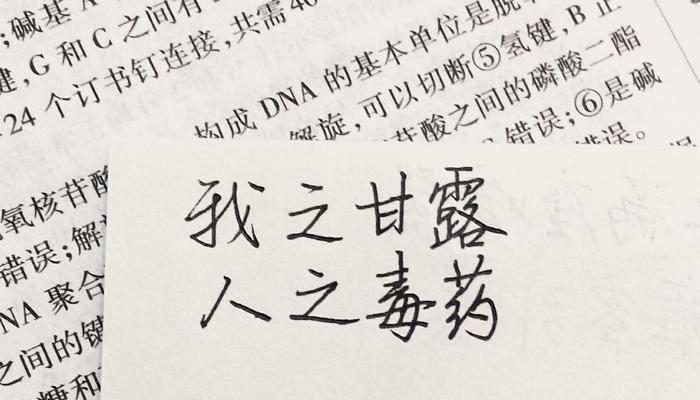 ;碱基 A
键,G 和 C 之间有
24 个订书钉连接,共需 40
构成 DNA 的基本单位是脱
解旋,可以切断⑤氢键,B 正
苷酸之间的磷酸二酯
错误;⑥是碱
错误。
氧核苷酸
错误;解
NA 聚合
之间的键
糖和
我之甘露
人之毒药